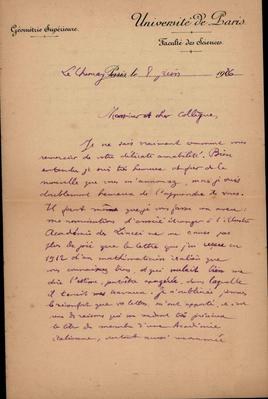 Géométrie Supérieure.
Université de Paris
Faculté des Sciences
Le Chesnay Paris, le 8 juin 19
Monsieur et cher Collègue,
Je ne sais vraiment comment vous
remercier de votre délicate amabilité. Bien
entendu je suis très heureux de la
nouvelle que vous m'annoncez, mais je suis
doublement heureux de l'apprendre de vous.
Il faut même que je vous fasse un aveu :
ma nomination d'associé étranger à l'illustre
Académie des Lincei ne me cause pas
plus de joie que la lettre que j'ai reçue en
1912 d'un mathématicien italien que
vous connaissez bien, et qui voulait bien me
dire l'estime, dans laquelle
il tenait mes travaux. Je n'oublierai jamais
le réconfort que vos lettres m'ont apporté, et
des raisons qui me rendent très précieux
le titre de membre d'une Académie
italienne,